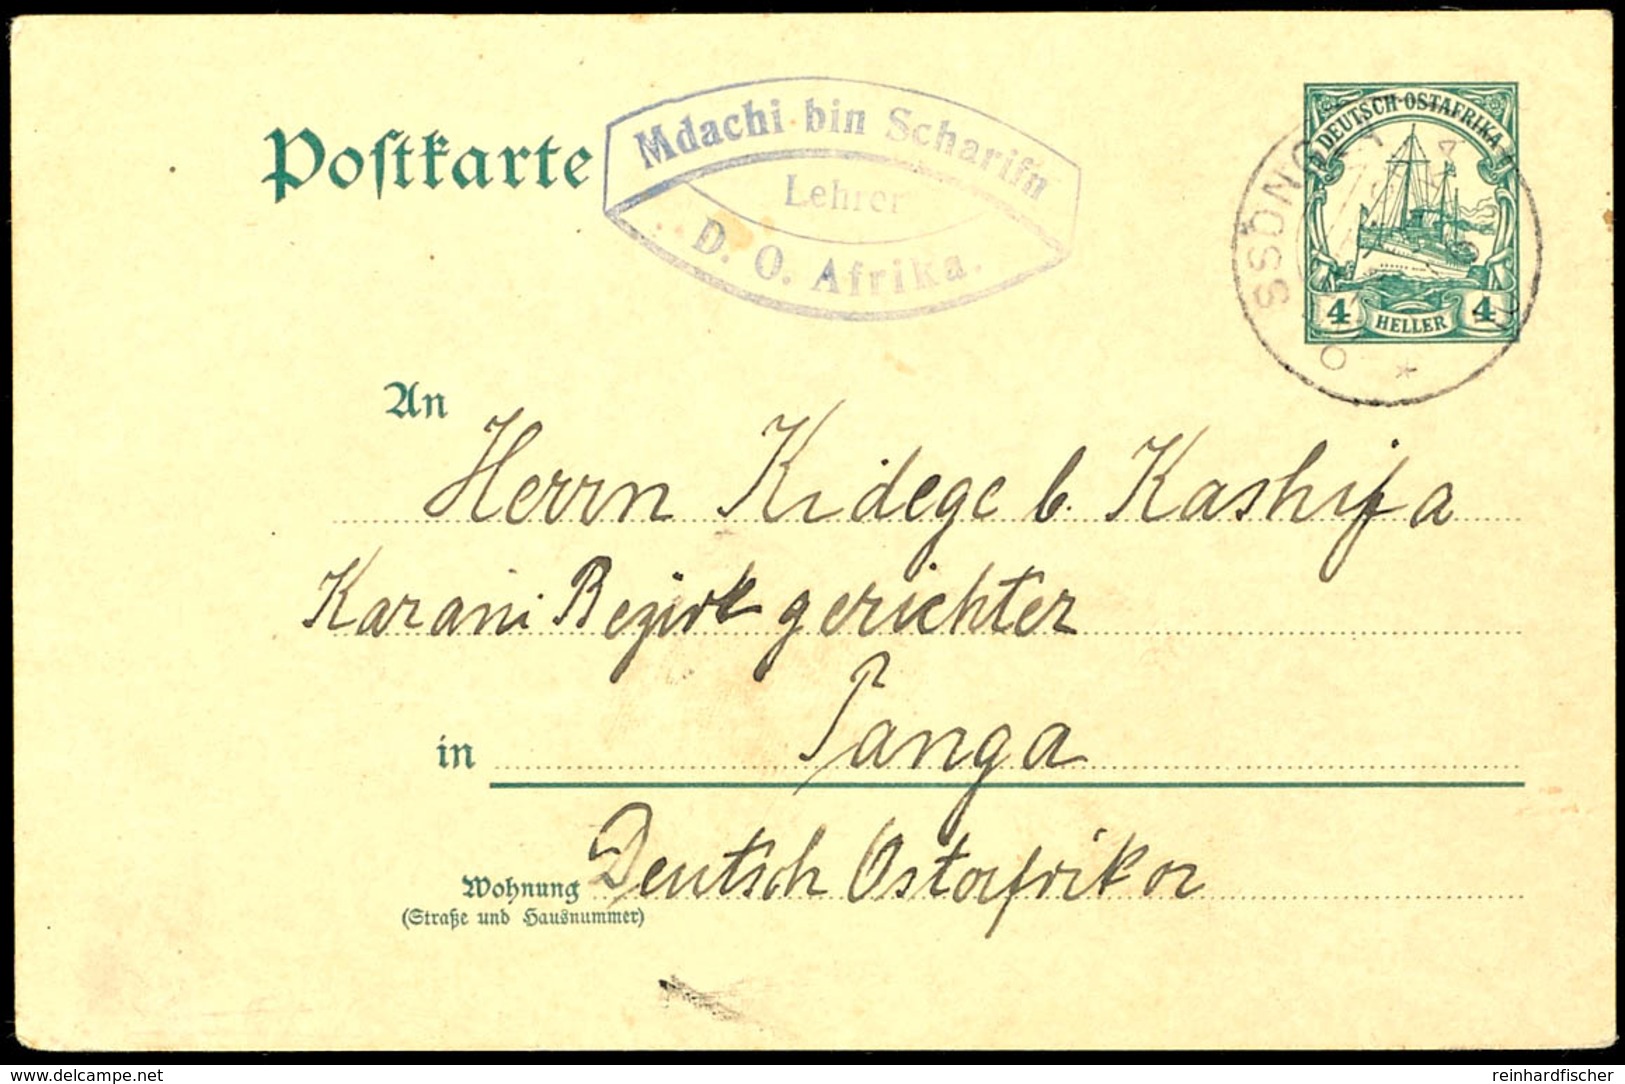 Postkarte
Mdachi bin Scharifn
Lehrer
D. O. Afrika.
DEUTSCH-OSTAFRIKA
4 HELLER 4
SSONGEA
An
Herrn Kidege b. Kashifa
Karani Bezirkgerichter
in Tanga
Wohnung Deutsch Ostafrika
(Straße und Hausnummer)
www.delcampe.net
reinhardfischer